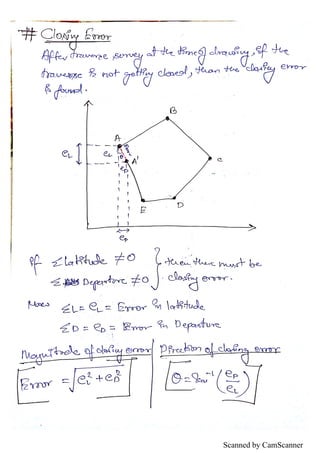 # Closing Error
After traverse survey at the time of drawing, if the
traverse is not getting closed, then the closing error
is found.
B
A
eL
eL
A'
C
eD
D
E
eD
If ΣLatitude ≠ 0
ΣDeparture ≠ 0
then there must be
closing error.
ΣL = eL = Error in latitude
ΣD = eD = Error in Departure
Magnitude of closing error
Error = √eL² + eD²
Direction of closing error
θ = tan⁻¹ (eD/eL)
Scanned by CamScanner